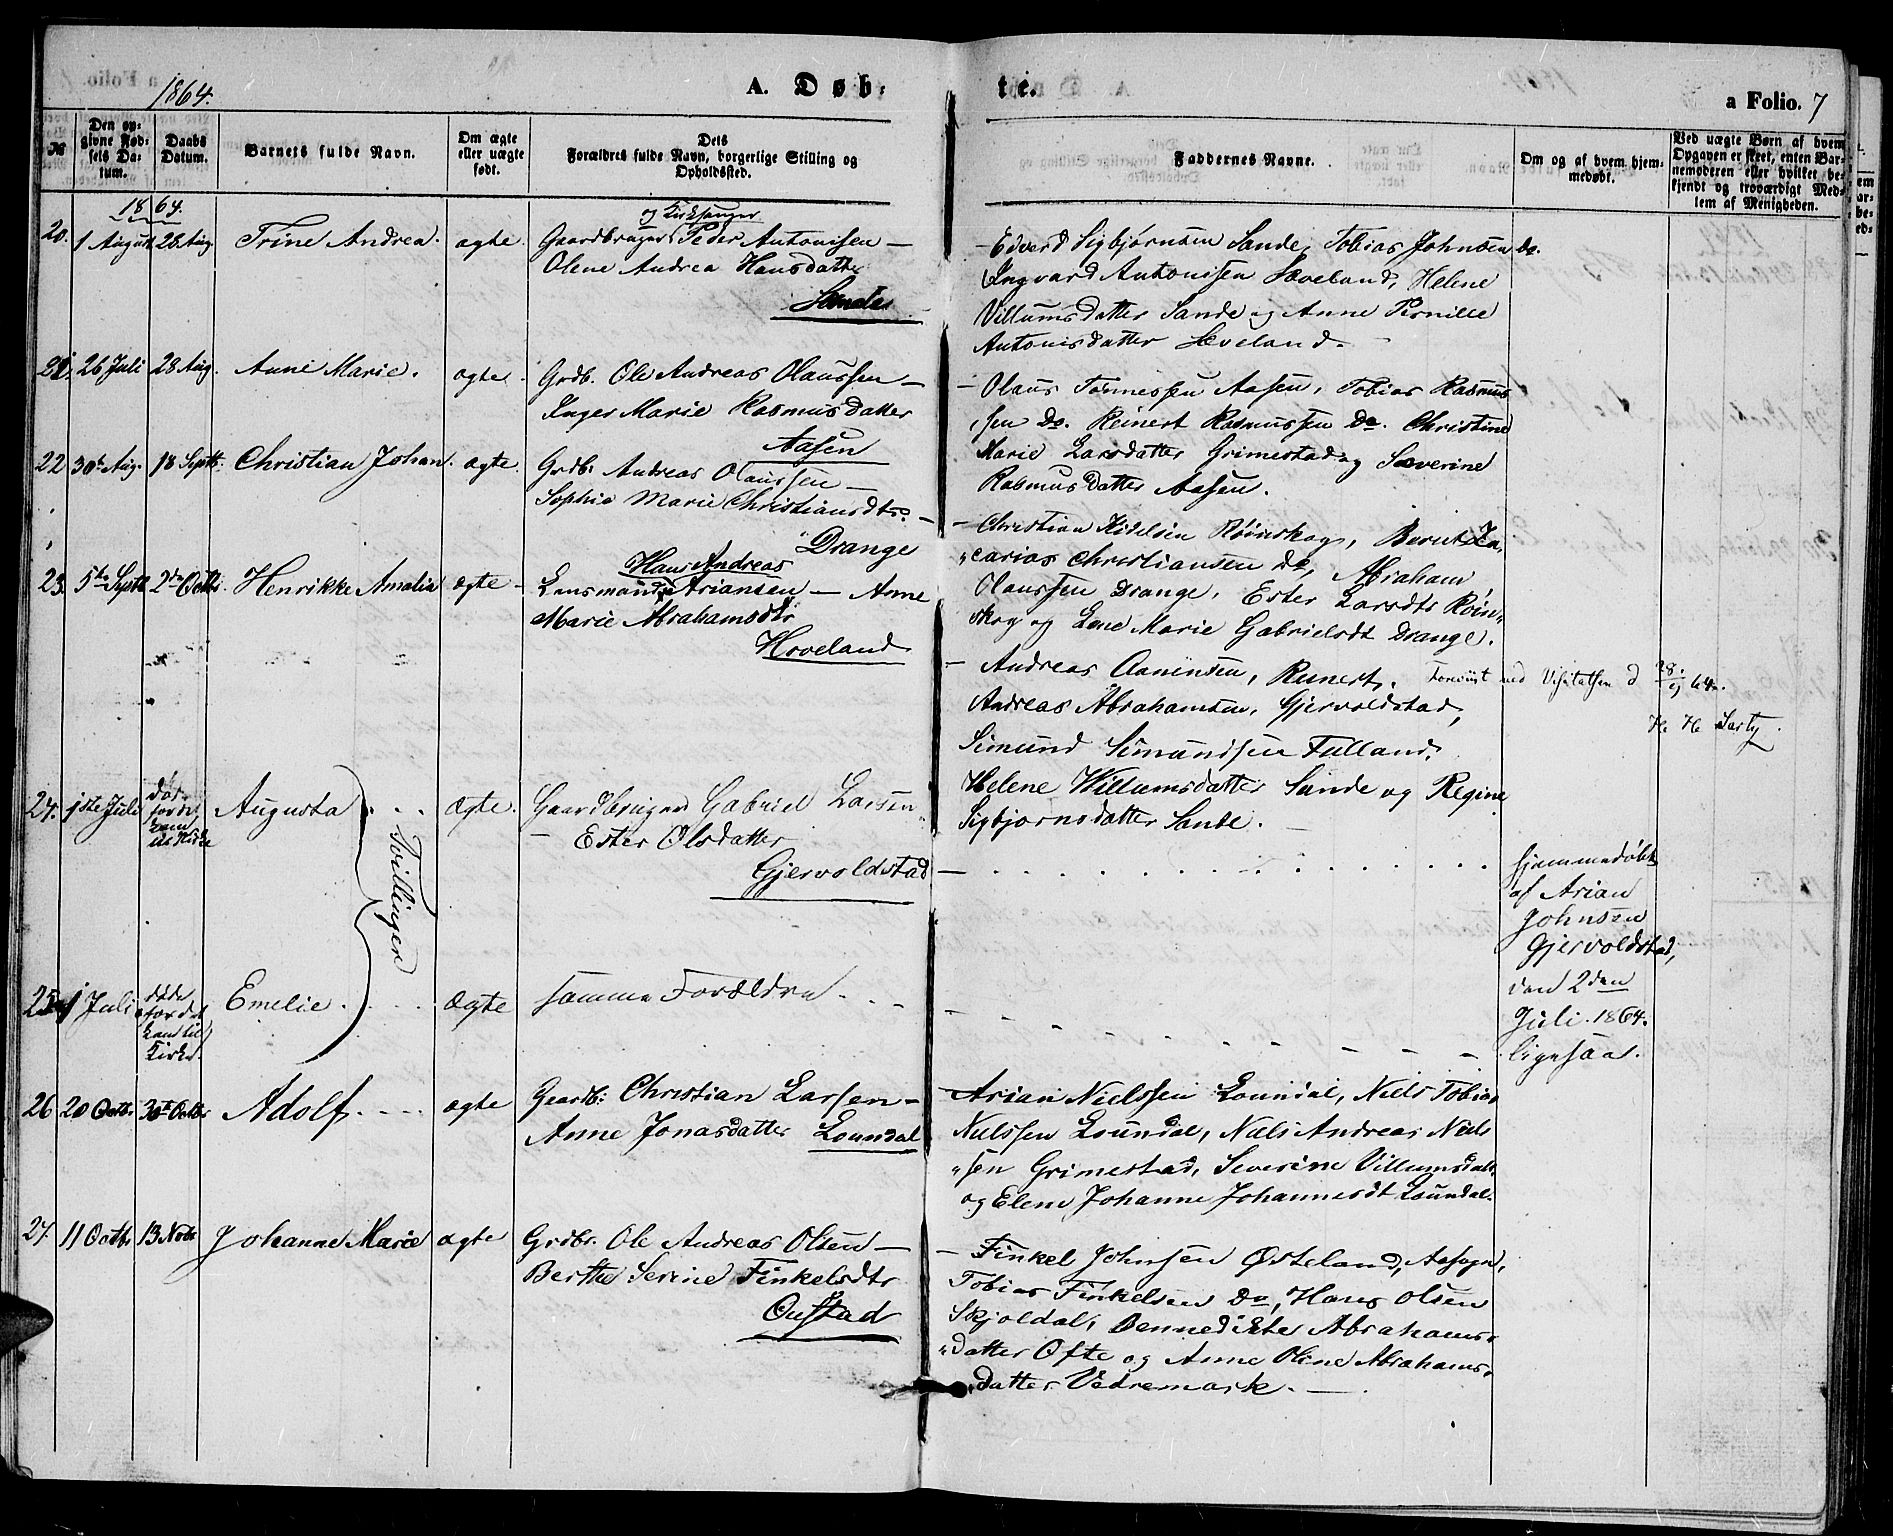 1864.
A. Døbte.
a Folio. 7
№
Den opgivne Fødsels Datum.
Daabs Datum.
Barnets fulde Navn.
Om ægte eller uægte født.
Dets Forældres fulde Navn, borgerlige Stilling og Opholdssted.
Faddernes Navne.
Om og af hvem hjemmedøbt.
Ved uægte Børn af hvem Opgaven er skeet, enten Barnemoderen eller hvilket bekjendt og troværdigt Medlem af Menigheden.
1864.
20. 1 August 28 Aug. Trine Andrea. ægte. Gaardbruger og Kirkesanger Peder Antonisen —
Olene Andrea Hansdatter
Sande
— Edvard Sigbjørnsen Sande, Tobias Johnsen do.
Ingvard Antonisen Sæveland, Helene
Villumsdatter Sande og Anne Pernille
Antonisdatter Sæveland.
21. 26 Juli 28 Aug. Anne Marie. ægte. Grdb. Ole Andreas Olaussen —
Inger Marie Rasmusdatter
Aasen
— Olaus Tønnessen Aasen, Tobias Rasmus
sen Do. Reinert Rasmussen Do. Christine
Marie Larsdatter Grimestad og Severine
Rasmusdatter Aasen.
22 30te Aug. 18 Septb. Christian Johan. ægte. Grdb: Andreas Olaussen —
Sophie Marie Christiansdtr. —
Drange
— Christian Kidelsen Røinskog, Bernt Za,
"carias Christiansen do, Abraham
Olaussen Drange, Ester Larsdtr Røin,
skog og Lene Marie Gabrielsdt Drange.
23. 5te Septb 2den Octbr. Henrikke Amalia ægte — Lensmand Hans Andreas Ariansen — Anne
Marie Abrahamsdtr
Hoveland
— Andreas Aanensen, Reinert,
Andreas Abrahamsen, Gjervoldstad,
Simund Simundsen Fulland,
Helene Willumsdatter Sande og Regine
Sigbjørnsdatter Sande. —
Foreviist ved Visitatsen d 28/9 64.
24. 1ste Juli død før det kom til Kirke Augusta . . . ægte. Gaardbruger Gabriel Larsen
— Ester Olsdatter
Gjervoldstad
Hjemmedøbt
af Arian
Johnsen
Gjervoldstad,
den 2den
Juli. 1864.
Tvillinger
25. 1 Juli døde før det kom til Kirke. Emelie . . . ægte samme Forældre . — —
ligesaa.
26 20 Octbr 30te Octbr Adolf . . . ægte Gaardb: Christian Larsen —
Anne Jonasdatter Loundal
— Arian Nielssen Loundal, Niels Tobias
Nielssen Loundal, Niels Andreas Niels
"sen Grimestad, Severine Villumsdatt.
og Elene Johanne Johannesdt Loundal.
27. 11 Octbr 13 Nobr Johanne Marie ægte Grdbr. Ole Andreas Olsen —
Berthe Serine Finkelsdtr
Oustad
— Finkel Johnsen Østeland, Aasogn,
Tobias Finkelsen Do, Hans Olsen
Skjoldal, Bennedikte Abrahams,
"datter Ofte og Anne Oline Abrahams,
datter Vedremark. —